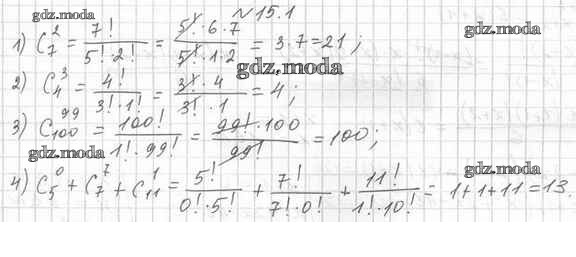 gdz.moda
№15.1
1) C₇² = 7! / (5!·2!) = (5!·6·7) / (5!·1·2) = 3·7=21;
gdz.moda
gdz.moda
2) C₄³ = 4! / (3!·1!) = (3!·4) / (3!·1) = 4;
3) C₁₀₀⁹⁹ = 100! / (1!·99!) = (99!·100) / 99! = 100;
gdz.moda
gdz.moda
4) C₅⁰ + C₇⁷ + C₁₁¹ = 5! / (0!·5!) + 7! / (7!·0!) + 11! / (1!·10!) = 1+1+11=13.